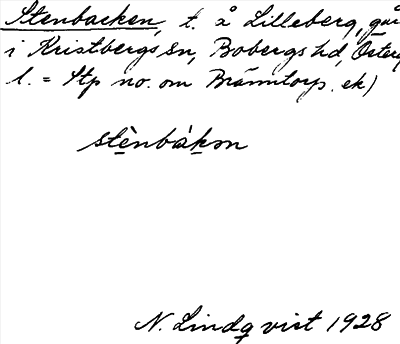 Stenbacken, t. å Lilleberg, går
i Kristbergs sn, Bobergs hd, Österg
l. = Stp no. om Bränntorp. ek)
stènbákɷn
N. Lindqvist 1928